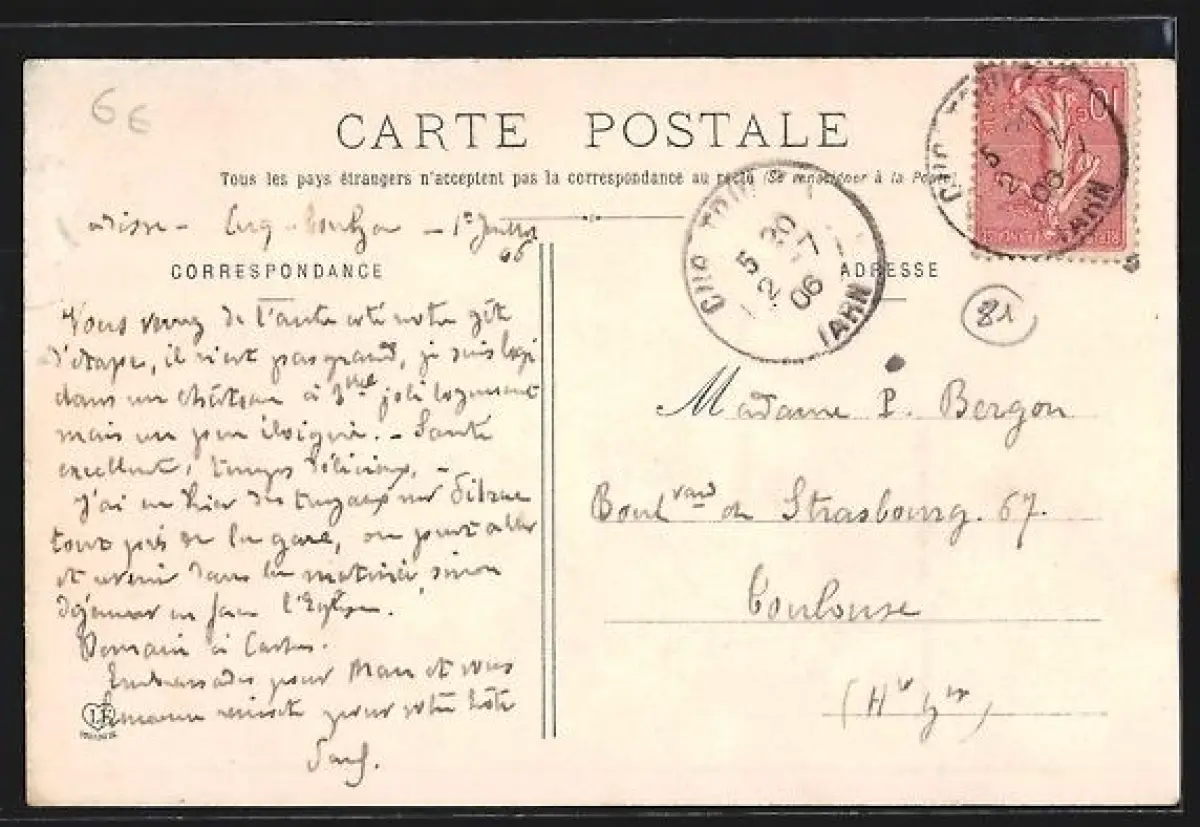 6 €
CARTE POSTALE
Tous les pays étrangers n'acceptent pas la correspondance au recto (Se renseigner à la Poste)
Cuq-Toulza - 1er Juillet
06
CORRESPONDANCE
Vous voyez de l'autre côté notre gîte
d'étape, il n'est pas grand, je suis logé
dans un château à 3 joli logement
mais un peu éloigné. - Santé
excellente, temps délicieux. -
J'ai vu hier des
tout près de la gare, on peut aller
et venir dans la matinée, sinon
déjeuner en face l'Eglise.
Demain à Castres.
Embrassades pour Man et vous
pour votre hôte
CUQ TOULZA
5 20
2 -7
06
TARN
10c
CUQ TOULZA
5
2 -7
06
TARN
ADRESSE
81
Madame P. Bergon
Boulvard de Strasbourg. 67.
Toulouse
(Hte Gne)